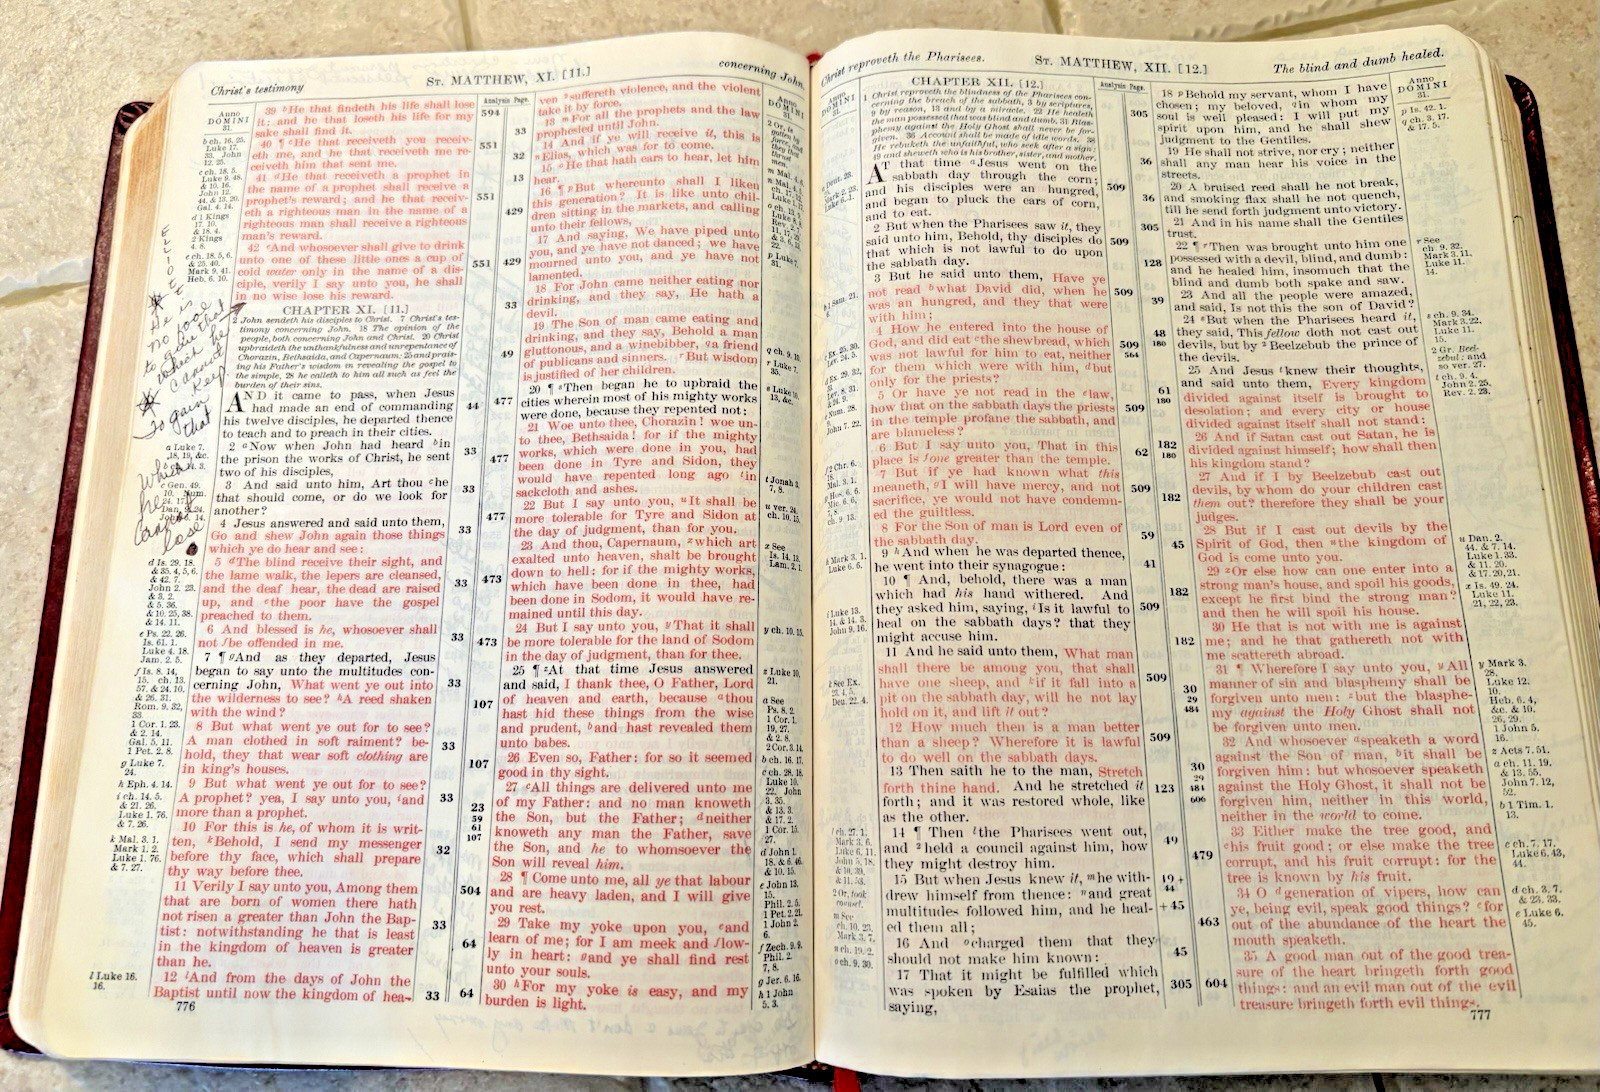 Christ's testimony
ST. MATTHEW, XI. [11.]
concerning John.
Anno
DOMINI
31.
b ch. 16. 25.
Luke 17.
33. John
12. 25.
c ch. 18. 5.
Luke 9. 48.
& 10. 16.
John 12.
44. & 13. 20.
Gal. 4. 14.
d 1 Kings
17. 10.
& 18. 4.
2 Kings
4. 8.
e ch. 18. 5, 6.
& 25. 40.
Mark 9. 41.
Heb. 6. 10.
ELLIOTT
He is
no fool
to give that
which he
cannot
keep
To gain
that
which
he
cannot
lose
a Luke 7.
18, 19, &c.
c Gen. 49.
10. Num.
24. 17.
Dan. 9. 24.
John 6. 14.
d Is. 29. 18.
& 35. 4, 5, 6.
& 42. 7.
John 2. 23.
& 3. 2.
& 5. 36.
& 10. 25, 38.
& 14. 11.
e Ps. 22. 26.
Is. 61. 1.
Luke 4. 18.
Jam. 2. 5.
f Is. 8. 14,
15. ch. 13.
57. & 24. 10.
& 26. 31.
Rom. 9. 32,
33.
1 Cor. 1. 23.
& 2. 14.
Gal. 5. 11.
1 Pet. 2. 8.
g Luke 7.
24.
h Eph. 4. 14.
i ch. 14. 5.
& 21. 26.
Luke 1. 76.
& 7. 26.
k Mal. 3. 1.
Mark 1. 2.
Luke 1. 76.
& 7. 27.
l Luke 16.
16.
39 b He that findeth his life shall lose
it: and he that loseth his life for my
sake shall find it.
40 ¶ c He that receiveth you receiv-
eth me, and he that receiveth me re-
ceiveth him that sent me.
41 d He that receiveth a prophet in
the name of a prophet shall receive a
prophet's reward; and he that receiv-
eth a righteous man in the name of a
righteous man shall receive a righteous
man's reward.
42 e And whosoever shall give to drink
unto one of these little ones a cup of
cold water only in the name of a dis-
ciple, verily I say unto you, he shall
in no wise lose his reward.
CHAPTER XI. [11.]
2 John sendeth his disciples to Christ. 7 Christ's tes-
timony concerning John. 18 The opinion of the
people, both concerning John and Christ. 20 Christ
upbraideth the unthankfulness and unrepentance of
Chorazin, Bethsaida, and Capernaum: 25 and prais-
ing his Father's wisdom in revealing the gospel to
the simple, 28 he calleth to him all such as feel the
burden of their sins.
AND it came to pass, when Jesus
had made an end of commanding
his twelve disciples, he departed thence
to teach and to preach in their cities.
2 a Now when John had heard b in
the prison the works of Christ, he sent
two of his disciples,
3 And said unto him, Art thou c he
that should come, or do we look for
another?
4 Jesus answered and said unto them,
Go and shew John again those things
which ye do hear and see:
5 d The blind receive their sight, and
the lame walk, the lepers are cleansed,
and the deaf hear, the dead are raised
up, and e the poor have the gospel
preached to them.
6 And blessed is he, whosoever shall
not f be offended in me.
7 ¶ g And as they departed, Jesus
began to say unto the multitudes con-
cerning John, What went ye out into
the wilderness to see? h A reed shaken
with the wind?
8 But what went ye out for to see?
A man clothed in soft raiment? be-
hold, they that wear soft clothing are
in king's houses.
9 But what went ye out for to see?
A prophet? yea, I say unto you, i and
more than a prophet.
10 For this is he, of whom it is writ-
ten, k Behold, I send my messenger
before thy face, which shall prepare
thy way before thee.
11 Verily I say unto you, Among them
that are born of women there hath
not risen a greater than John the Bap-
tist: notwithstanding he that is least
in the kingdom of heaven is greater
than he.
12 l And from the days of John the
Baptist until now the kingdom of hea-
776
Analysis Page.
594
33
551
32
13
551
429
551 429
33
49
477
44
33
477
33
477
33
33 473
33 473
33
107
33
107
33
23
59
61
107
32
504
33
64
33 64
ven m suffereth violence, and the violent
take it by force.
13 n For all the prophets and the law
prophesied until John.
14 And if ye will receive it, this is
o Elias, which was for to come.
15 p He that hath ears to hear, let him
hear.
16 ¶ q But whereunto shall I liken
this generation? It is like unto chil-
dren sitting in the markets, and calling
unto their fellows,
17 And saying, We have piped unto
you, and ye have not danced; we have
mourned unto you, and ye have not
lamented.
18 For John came neither eating nor
drinking, and they say, He hath a
devil.
19 The Son of man came eating and
drinking, and they say, Behold a man
gluttonous, and a winebibber, q a friend
of publicans and sinners. r But wisdom
is justified of her children.
20 ¶ s Then began he to upbraid the
cities wherein most of his mighty works
were done, because they repented not:
21 Woe unto thee, Chorazin! woe un-
to thee, Bethsaida! for if the mighty
works, which were done in you, had
been done in Tyre and Sidon, they
would have repented long ago t in
sackcloth and ashes.
22 But I say unto you, u It shall be
more tolerable for Tyre and Sidon at
the day of judgment, than for you.
23 And thou, Capernaum, x which art
exalted unto heaven, shalt be brought
down to hell: for if the mighty works,
which have been done in thee, had
been done in Sodom, it would have re-
mained until this day.
24 But I say unto you, y That it shall
be more tolerable for the land of Sodom
in the day of judgment, than for thee.
25 ¶ z At that time Jesus answered
and said, I thank thee, O Father, Lord
of heaven and earth, because a thou
hast hid these things from the wise
and prudent, b and hast revealed them
unto babes.
26 Even so, Father: for so it seemed
good in thy sight.
27 c All things are delivered unto me
of my Father: and no man knoweth
the Son, but the Father; d neither
knoweth any man the Father, save
the Son, and he to whomsoever the
Son will reveal him.
28 ¶ Come unto me, all ye that labour
and are heavy laden, and I will give
you rest.
29 Take my yoke upon you, e and
learn of me; for I am meek and f low-
ly in heart: g and ye shall find rest
unto your souls.
30 h For my yoke is easy, and my
burden is light.
Anno
DOMINI
31.
p Luke 7.
31.
q ch. 9. 10.
r Luke 7.
35.
s Luke 10.
13, &c.
t Jonah 3.
7, 8.
u ver. 24.
ch. 10. 15.
x See
Is. 14. 13.
Lam. 2. 1.
y ch. 10. 15.
z Luke 10.
21.
a See
Ps. 8. 2.
1 Cor. 1.
19, 27.
& 2. 8.
2 Cor. 3. 14.
b ch. 16. 17.
c ch. 28. 18.
Luke 10.
22. John
3. 35.
& 13. 3.
& 17. 2.
1 Cor. 15.
27.
d John 1.
18. & 6. 46.
& 10. 15.
e John 13.
15.
Phil. 2. 5.
1 Pet. 2. 21.
1 John 2.
6.
f Zech. 9. 9.
Phil. 2.
7, 8.
g Jer. 6. 16.
h 1 John
5. 3.
Christ reproveth the Pharisees.
ST. MATTHEW, XII. [12.]
The blind and dumb healed.
Anno
DOMINI
31.
CHAPTER XII. [12.]
1 Christ reproveth the blindness of the Pharisees con-
cerning the breach of the sabbath, 3 by scriptures,
9 by reason, 13 and by a miracle. 22 He healeth
the man possessed that was blind and dumb. 31 Blas-
phemy against the Holy Ghost shall never be for-
given. 36 Account shall be made of idle words. 38
He rebuketh the unfaithful, who seek after a sign:
49 and sheweth who is his brother, sister, and mother.
AT that time a Jesus went on the
sabbath day through the corn;
and his disciples were an hungred,
and began to pluck the ears of corn,
and to eat.
2 But when the Pharisees saw it, they
said unto him, Behold, thy disciples do
that which is not lawful to do upon
the sabbath day.
3 But he said unto them, Have ye
not read b what David did, when he
was an hungred, and they that were
with him;
4 How he entered into the house of
God, and did eat c the shewbread, which
was not lawful for him to eat, neither
for them which were with him, d but
only for the priests?
5 Or have ye not read in the e law,
how that on the sabbath days the priests
in the temple profane the sabbath, and
are blameless?
6 But I say unto you, That in this
place is f one greater than the temple.
7 But if ye had known what this
meaneth, g I will have mercy, and not
sacrifice, ye would not have condemn-
ed the guiltless.
8 For the Son of man is Lord even of
the sabbath day.
9 h And when he was departed thence,
he went into their synagogue:
10 ¶ And, behold, there was a man
which had his hand withered. And
they asked him, saying, i Is it lawful to
heal on the sabbath days? that they
might accuse him.
11 And he said unto them, What man
shall there be among you, that shall
have one sheep, and k if it fall into a
pit on the sabbath day, will he not lay
hold on it, and lift it out?
12 How much then is a man better
than a sheep? Wherefore it is lawful
to do well on the sabbath days.
13 Then saith he to the man, Stretch
forth thine hand. And he stretched it
forth; and it was restored whole, like
as the other.
14 ¶ Then l the Pharisees went out,
and 2 held a council against him, how
they might destroy him.
15 But when Jesus knew it, m he with-
drew himself from thence: n and great
multitudes followed him, and he heal-
ed them all;
16 And o charged them that they
should not make him known:
17 That it might be fulfilled which
was spoken by Esaias the prophet,
saying,
Analysis Page.
305
36
509
36
305
509
128
509
39
48
509 180
564
61
180
509
182
62 180
509
182
59
45
41
182
509
182
509
30
29
484
509
30
29
123 484
606
49
479
49 +
44
+ 45
463
45
305 604
18 p Behold my servant, whom I have
chosen; my beloved, q in whom my
soul is well pleased: I will put my
spirit upon him, and he shall shew
judgment to the Gentiles.
19 He shall not strive, nor cry; neither
shall any man hear his voice in the
streets.
20 A bruised reed shall he not break,
and smoking flax shall he not quench,
till he send forth judgment unto victory.
21 And in his name shall the Gentiles
trust.
22 ¶ r Then was brought unto him one
possessed with a devil, blind, and dumb:
and he healed him, insomuch that the
blind and dumb both spake and saw.
23 And all the people were amazed,
and said, Is not this the son of David?
24 s But when the Pharisees heard it,
they said, This fellow doth not cast out
devils, but by 2 Beelzebub the prince of
the devils.
25 And Jesus t knew their thoughts,
and said unto them, Every kingdom
divided against itself is brought to
desolation; and every city or house
divided against itself shall not stand:
26 And if Satan cast out Satan, he is
divided against himself; how shall then
his kingdom stand?
27 And if I by Beelzebub cast out
devils, by whom do your children cast
them out? therefore they shall be your
judges.
28 But if I cast out devils by the
Spirit of God, then u the kingdom of
God is come unto you.
29 x Or else how can one enter into a
strong man's house, and spoil his goods,
except he first bind the strong man?
and then he will spoil his house.
30 He that is not with me is against
me; and he that gathereth not with
me scattereth abroad.
31 ¶ Wherefore I say unto you, y All
manner of sin and blasphemy shall be
forgiven unto men: z but the blasphe-
my against the Holy Ghost shall not
be forgiven unto men.
32 And whosoever a speaketh a word
against the Son of man, b it shall be
forgiven him: but whosoever speaketh
against the Holy Ghost, it shall not be
forgiven him, neither in this world,
neither in the world to come.
33 Either make the tree good, and
c his fruit good; or else make the tree
corrupt, and his fruit corrupt: for the
tree is known by his fruit.
34 O d generation of vipers, how can
ye, being evil, speak good things? e for
out of the abundance of the heart the
mouth speaketh.
35 A good man out of the good trea-
sure of the heart bringeth forth good
things: and an evil man out of the evil
treasure bringeth forth evil things.
777
Anno
DOMINI
31.
p Is. 42. 1.
q ch. 3. 17.
& 17. 5.
r See
ch. 9. 32.
Mark 3. 11.
Luke 11.
14.
s ch. 9. 34.
Mark 3. 22.
Luke 11.
15.
2 Gr. Beel-
zebul: and
so ver. 27.
t ch. 9. 4.
John 2. 25.
Rev. 2. 23.
u Dan. 2.
44. & 7. 14.
Luke 1. 33.
& 11. 20.
& 17. 20, 21.
x Is. 49. 24.
Luke 11.
21, 22, 23.
y Mark 3.
28.
Luke 12.
10.
Heb. 6. 4,
&c. & 10.
26, 29.
1 John 5.
16.
z Acts 7. 51.
a ch. 11. 19.
& 13. 55.
John 7. 12,
52.
b 1 Tim. 1.
13.
c ch. 7. 17.
Luke 6. 43,
44.
d ch. 3. 7.
& 23. 33.
e Luke 6.
45.